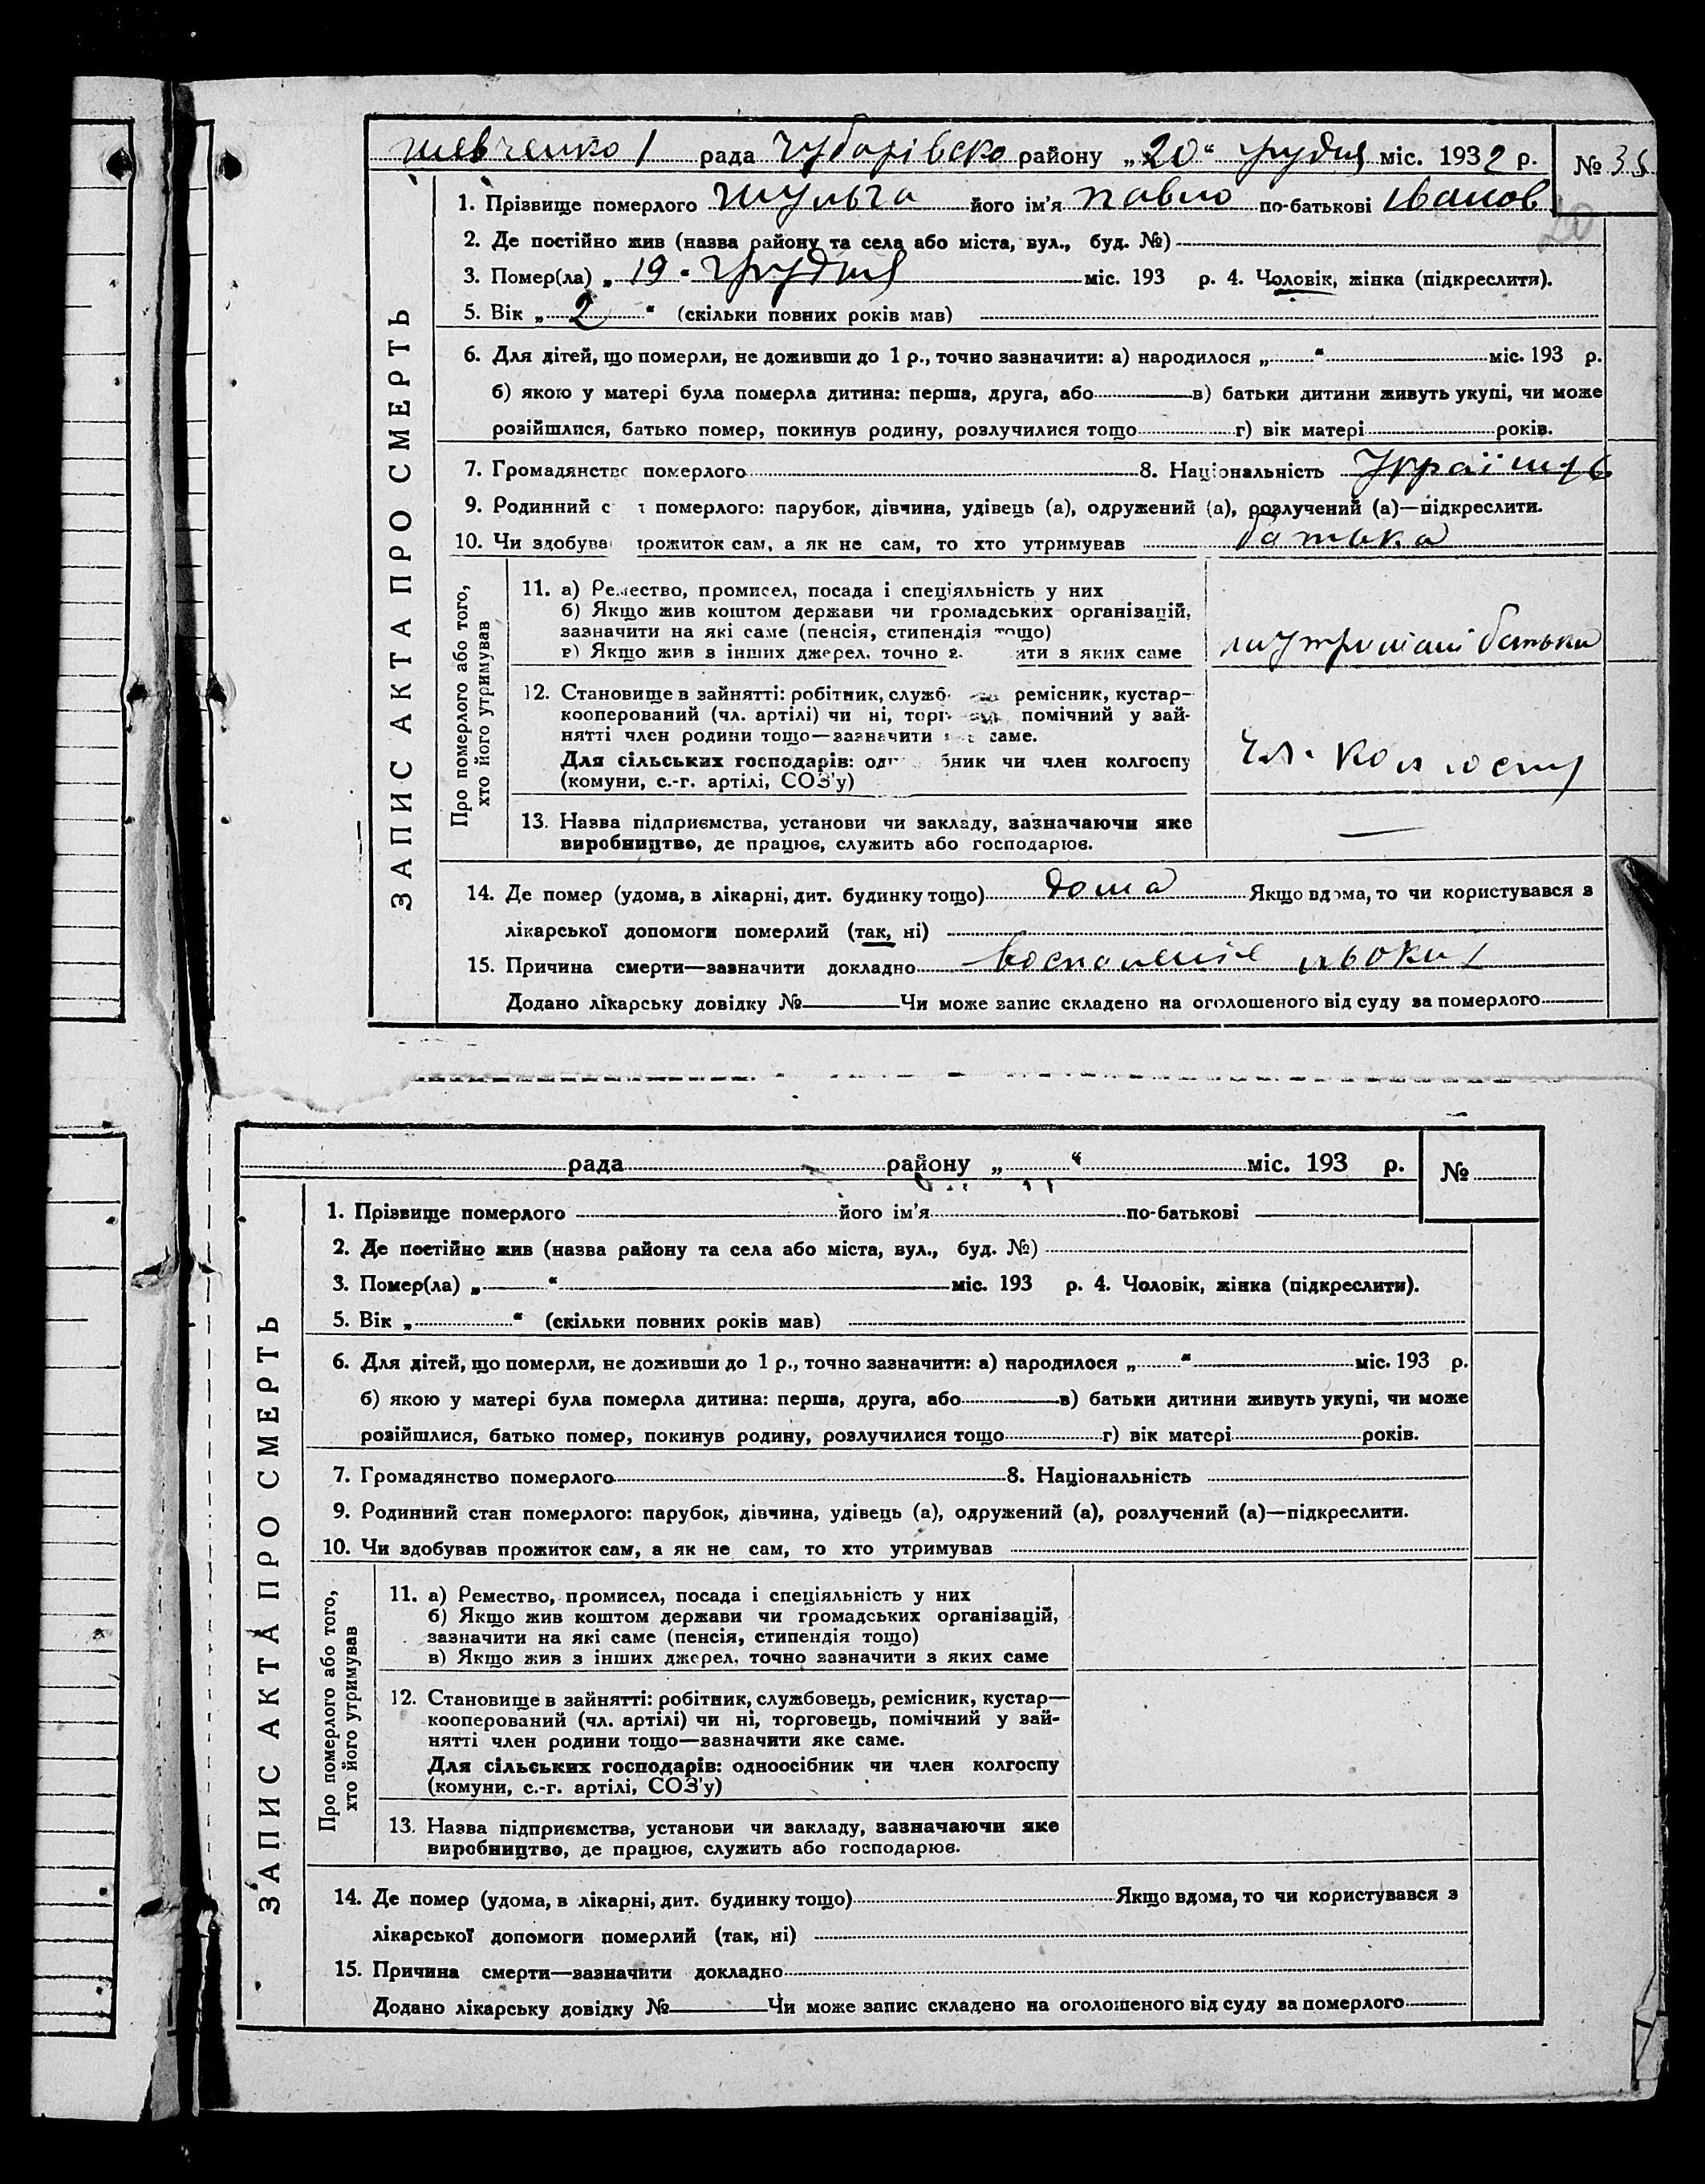 Шевченко 1 рада Чубарівсько району „20“ грудня міс. 1932 р. № 35
20
1. Прізвище померлого Шульга його ім’я Павло по-батькові Іванов
2. Де постійно жив (назва району та села або міста, вул., буд. №)
3. Помер(ла) „19“ грудня міс. 193 р. 4. Чоловік, жінка (підкреслити).
5. Вік „2“ (скільки повних років мав)
6. Для дітей, що померли, не доживши до 1 р., точно зазначити: а) народилося „ “ міс. 193 р.
б) якою у матері була померла дитина: перша, друга, або в) батьки дитини живуть укупі, чи може
розійшлися, батько помер, покинув родину, розлучилися тощо г) вік матері років.
7. Громадянство померлого 8. Національність
9. Родинний с т померлого: парубок, дівчина, удівець (а), одружений (а), розлучений (а)—підкреслити.
10. Чи здобува прожиток сам, а як не сам, то хто утримував батька
ЗАПИС АКТА ПРО СМЕРТЬ
Про померлого або того,
хто його утримував
11. а) Ремество, промисел, посада і спеціяльність у них
б) Якщо жив коштом держави чи громадських організацій,
зазначити на які саме (пенсія, стипендія тощо)
в) Якщо жив з інших джерел, точно з ити з яких саме
батька
12. Становище в зайнятті: робітник, служб ремісник, кустар-
кооперований (чл. артілі) чи ні, торг помічний у зай-
нятті член родини тощо—зазначити саме.
Для сільських господарів: од бник чи член колгоспу
(комуни, с.-г. артілі, СОЗ’у)
чл. колгоспу
13. Назва підприємства, установи чи закладу, зазначаючи яке
виробництво, де працює, служить або господарює.
14. Де помер (удома, в лікарні, дит. будинку тощо) дома Якщо вдома, то чи користувався з
лікарської допомоги померлий (так, ні)
15. Причина смерти—зазначити докладно
Додано лікарську довідку № Чи може запис складено на оголошеного від суду за померлого
рада району „ “ міс. 193 р. №
1. Прізвище померлого його ім’я по-батькові
2. Де постійно жив (назва району та села або міста, вул., буд. №)
3. Помер(ла) „ “ міс. 193 р. 4. Чоловік, жінка (підкреслити).
5. Вік „ “ (скільки повних років мав)
6. Для дітей, що померли, не доживши до 1 р., точно зазначити: а) народилося „ “ міс. 193 р.
б) якою у матері була померла дитина: перша, друга, або в) батьки дитини живуть укупі, чи може
розійшлися, батько помер, покинув родину, розлучилися тощо г) вік матері років.
7. Громадянство померлого 8. Національність
9. Родинний стан померлого: парубок, дівчина, удівець (а), одружений (а), розлучений (а)—підкреслити.
10. Чи здобував прожиток сам, а як не сам, то хто утримував
ЗАПИС АКТА ПРО СМЕРТЬ
Про померлого або того,
хто його утримував
11. а) Ремество, промисел, посада і спеціяльність у них
б) Якщо жив коштом держави чи громадських організацій,
зазначити на які саме (пенсія, стипендія тощо)
в) Якщо жив з інших джерел, точно зазначити з яких саме
12. Становище в зайнятті: робітник, службовець, ремісник, кустар—
кооперований (чл. артілі) чи ні, торговець, помічний у зай-
нятті член родини тощо—зазначити яке саме.
Для сільських господарів: одноосібник чи член колгоспу
(комуни, с.-г. артілі, СОЗ’у)
13. Назва підприємства, установи чи закладу, зазначаючи яке
виробництво, де працює, служить або господарює.
14. Де помер (удома, в лікарні, дит. будинку тощо) Якщо вдома, то чи користувався з
лікарської допомоги померлий (так, ні)
15. Причина смерти—зазначити докладно
Додано лікарську довідку № Чи може запис складено на оголошеного від суду за померлого